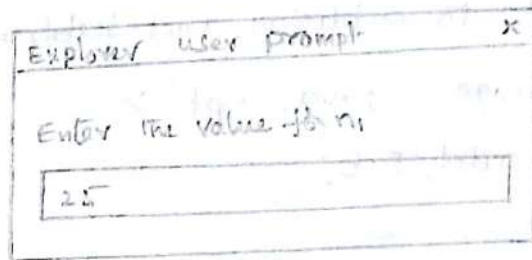 Explorer user prompt x
Enter the value for n,
25